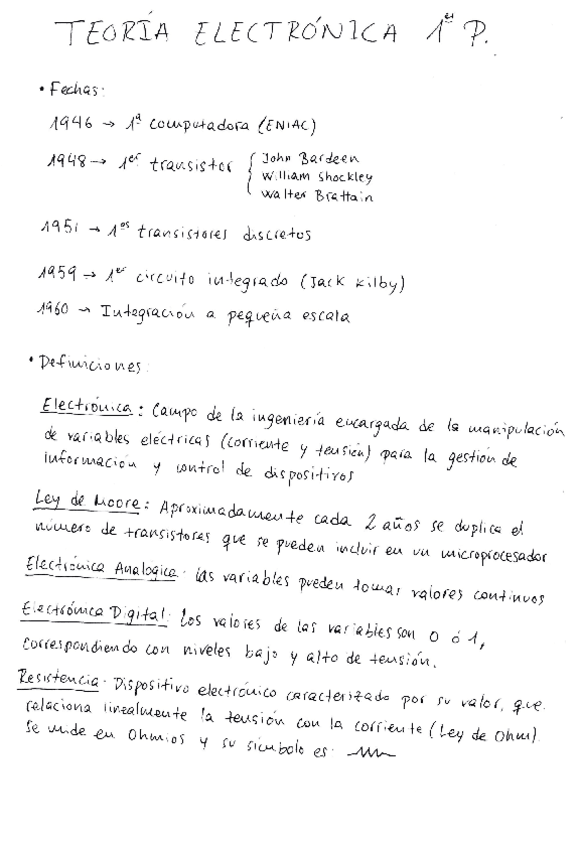 TEORÍA ELECTRÓNICA 1er P.
• Fechas:
1946 → 1ª computadora (ENIAC)
1948 → 1er transistor { John Bardeen
William Shockley
Walter Brattain
1951 → 1os transistores discretos
1959 → 1er circuito integrado (Jack Kilby)
1960 → Integración a pequeña escala
• Definiciones:
Electrónica: Campo de la ingeniería encargada de la manipulación
de variables eléctricas (corriente y tensión) para la gestión de
información y control de dispositivos
Ley de Moore: Aproximadamente cada 2 años se duplica el
número de transistores que se pueden incluir en un microprocesador
Electrónica Analógica: las variables pueden tomar valores continuos
Electrónica Digital: Los valores de las variables son 0 ó 1,
correspondiendo con niveles bajo y alto de tensión.
Resistencia: Dispositivo electrónico caracterizado por su valor, que
relaciona linealmente la tensión con la corriente (Ley de Ohm).
Se mide en Ohmios y su símbolo es: